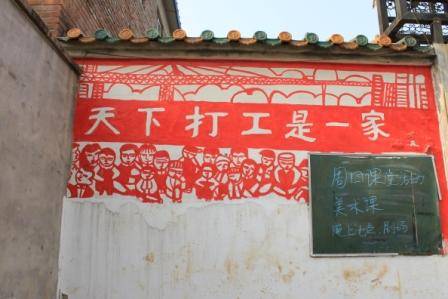 天下打工是一家
周日课堂活动
美术课
晚上七点 剧场